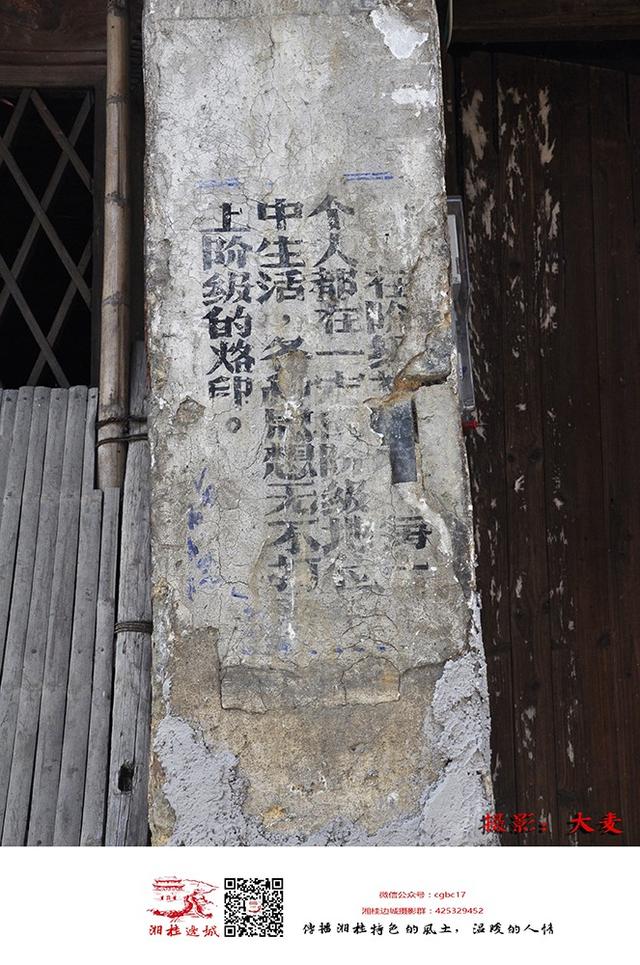 在阶级社 每一
个人都在一定的阶级地位
中生活，各种思想无不打
上阶级的烙印。
摄影：大麦
湘桂边城
微信公众号：cgbc17
湘桂边城摄影群：425329452
传播湘桂特色的風土，温暖的人情